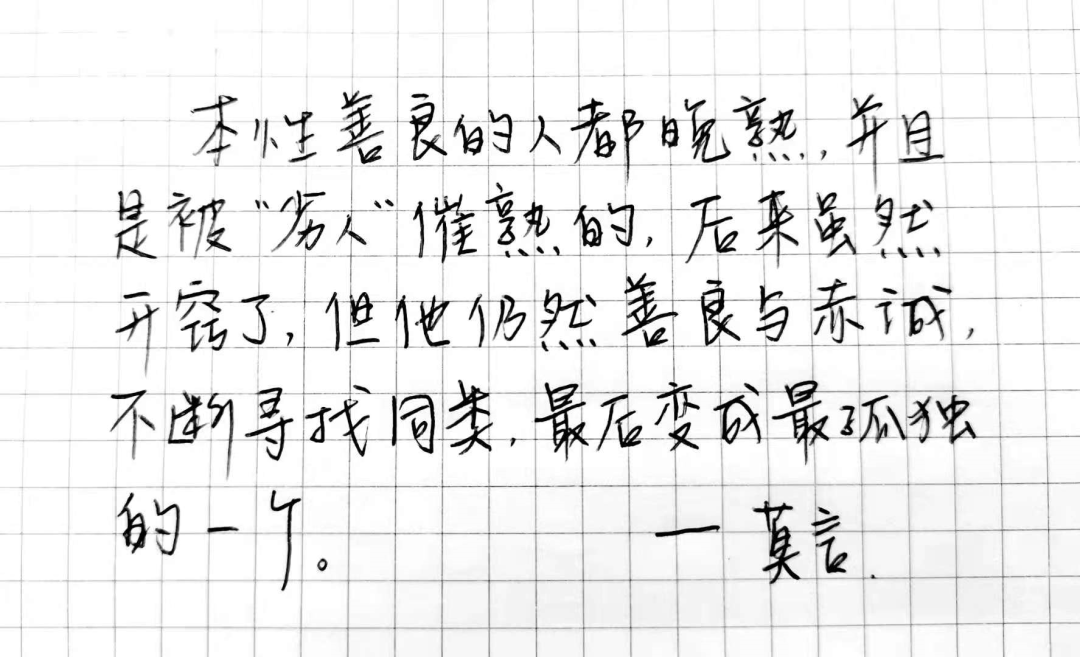 本性善良的人都晚熟,并且
是被“劣人”催熟的,后来虽然
开窍了,但他仍然善良与赤诚,
不断寻找同类,最后变成最孤独
的一个。 — 莫言.